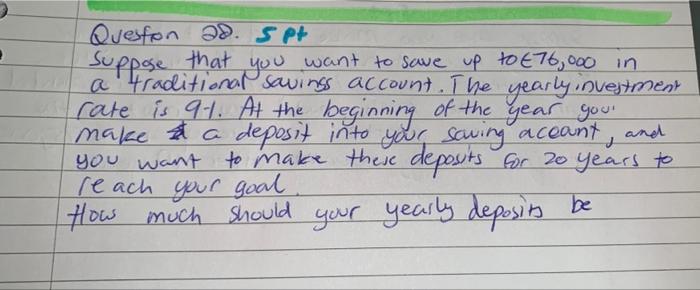 Question 28. 5 pt
Suppose that you want to save up to €76,000 in
a traditional savings account. The yearly investment
rate is 9%. At the beginning of the year you
make a deposit into your saving account, and
you want to make these deposits for 20 years to
reach your goal.
How much should your yearly deposits be